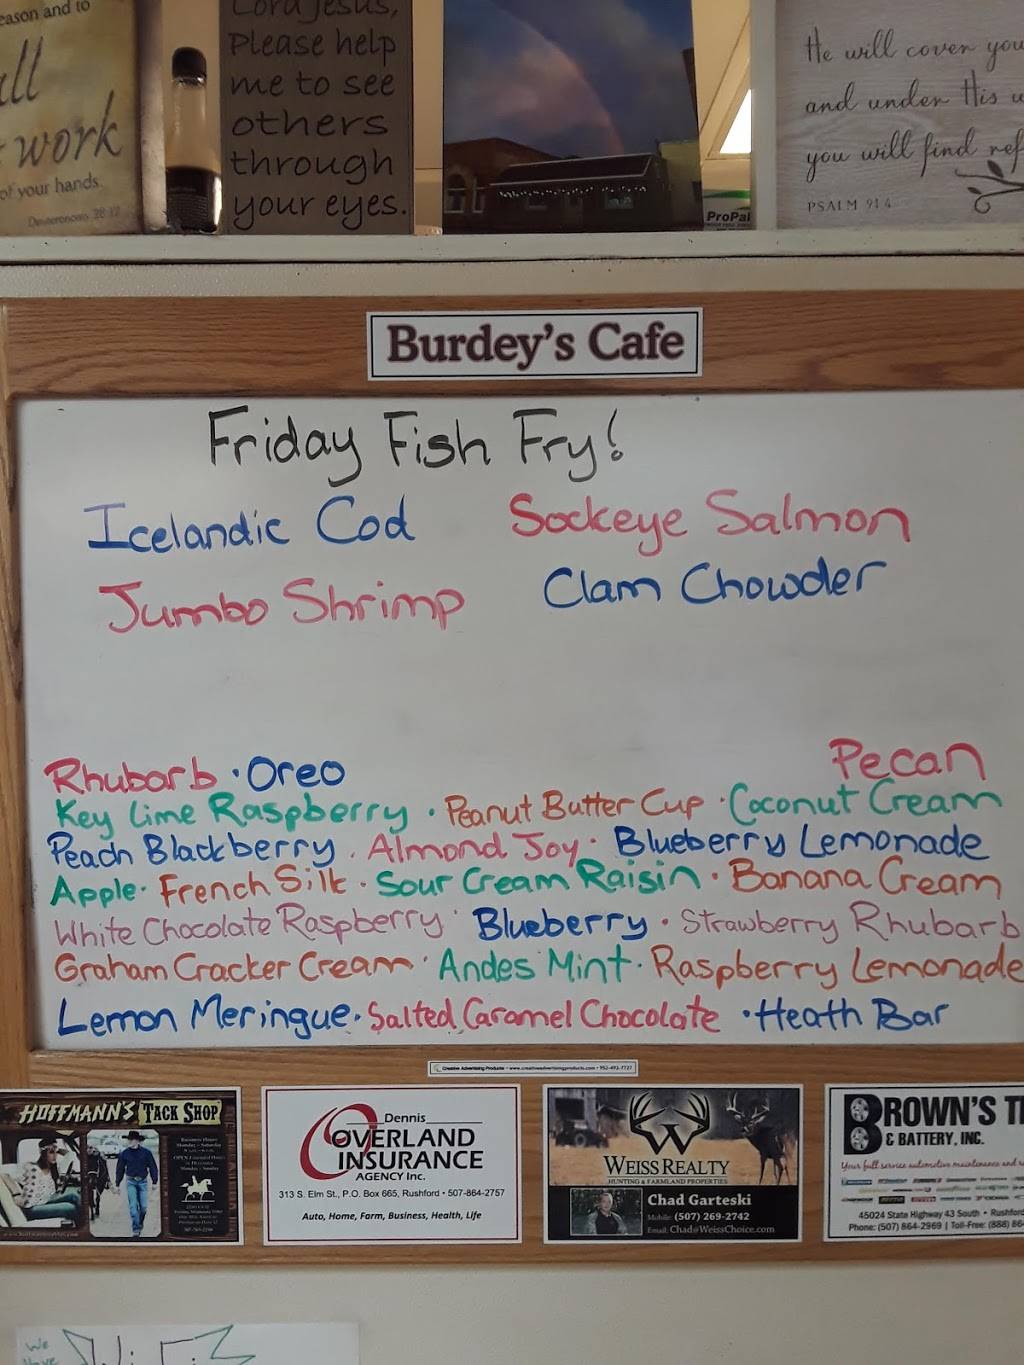 eason and to
all
work
of your hands.
Deuteronomy 28:12
Lord Jesus,
Please help
me to see
others
through
your eyes.
ProPal
He will cover you
and under His w
you will find ref
PSALM 91:4
Burdey's Cafe
Friday Fish Fry!
Icelandic Cod Sockeye Salmon
Jumbo Shrimp Clam Chowder
Pecan
Rhubarb · Oreo
Key Lime Raspberry · Peanut Butter Cup · Coconut Cream
Peach Blackberry · Almond Joy · Blueberry Lemonade
Apple · French Silk · Sour Cream Raisin · Banana Cream
White Chocolate Raspberry · Blueberry · Strawberry Rhubarb
Graham Cracker Cream · Andes Mint · Raspberry Lemonade
Lemon Meringue · Salted Caramel Chocolate · Heath Bar
Creative Advertising Products • www.creativeadvertisingproducts.com • 952-492-7727
HOFFMANN'S TACK SHOP
Business Hours
Monday - Saturday
Dennis
OVERLAND
INSURANCE
AGENCY Inc.
313 S. Elm St., P.O. Box 665, Rushford • 507-864-2757
Auto, Home, Farm, Business, Health, Life
WEISS REALTY
HUNTING & FARMLAND PROPERTIES
Chad Garteski
Mobile: (507) 269-2742
Email: Chad@WeissChoice.com
BROWN'S TI
& BATTERY, INC.
Your full service automotive maintenance and r
45024 State Highway 43 South • Rushford
Phone: (507) 864-2969 | Toll-Free: (888) 864
We
have
Wi Fi